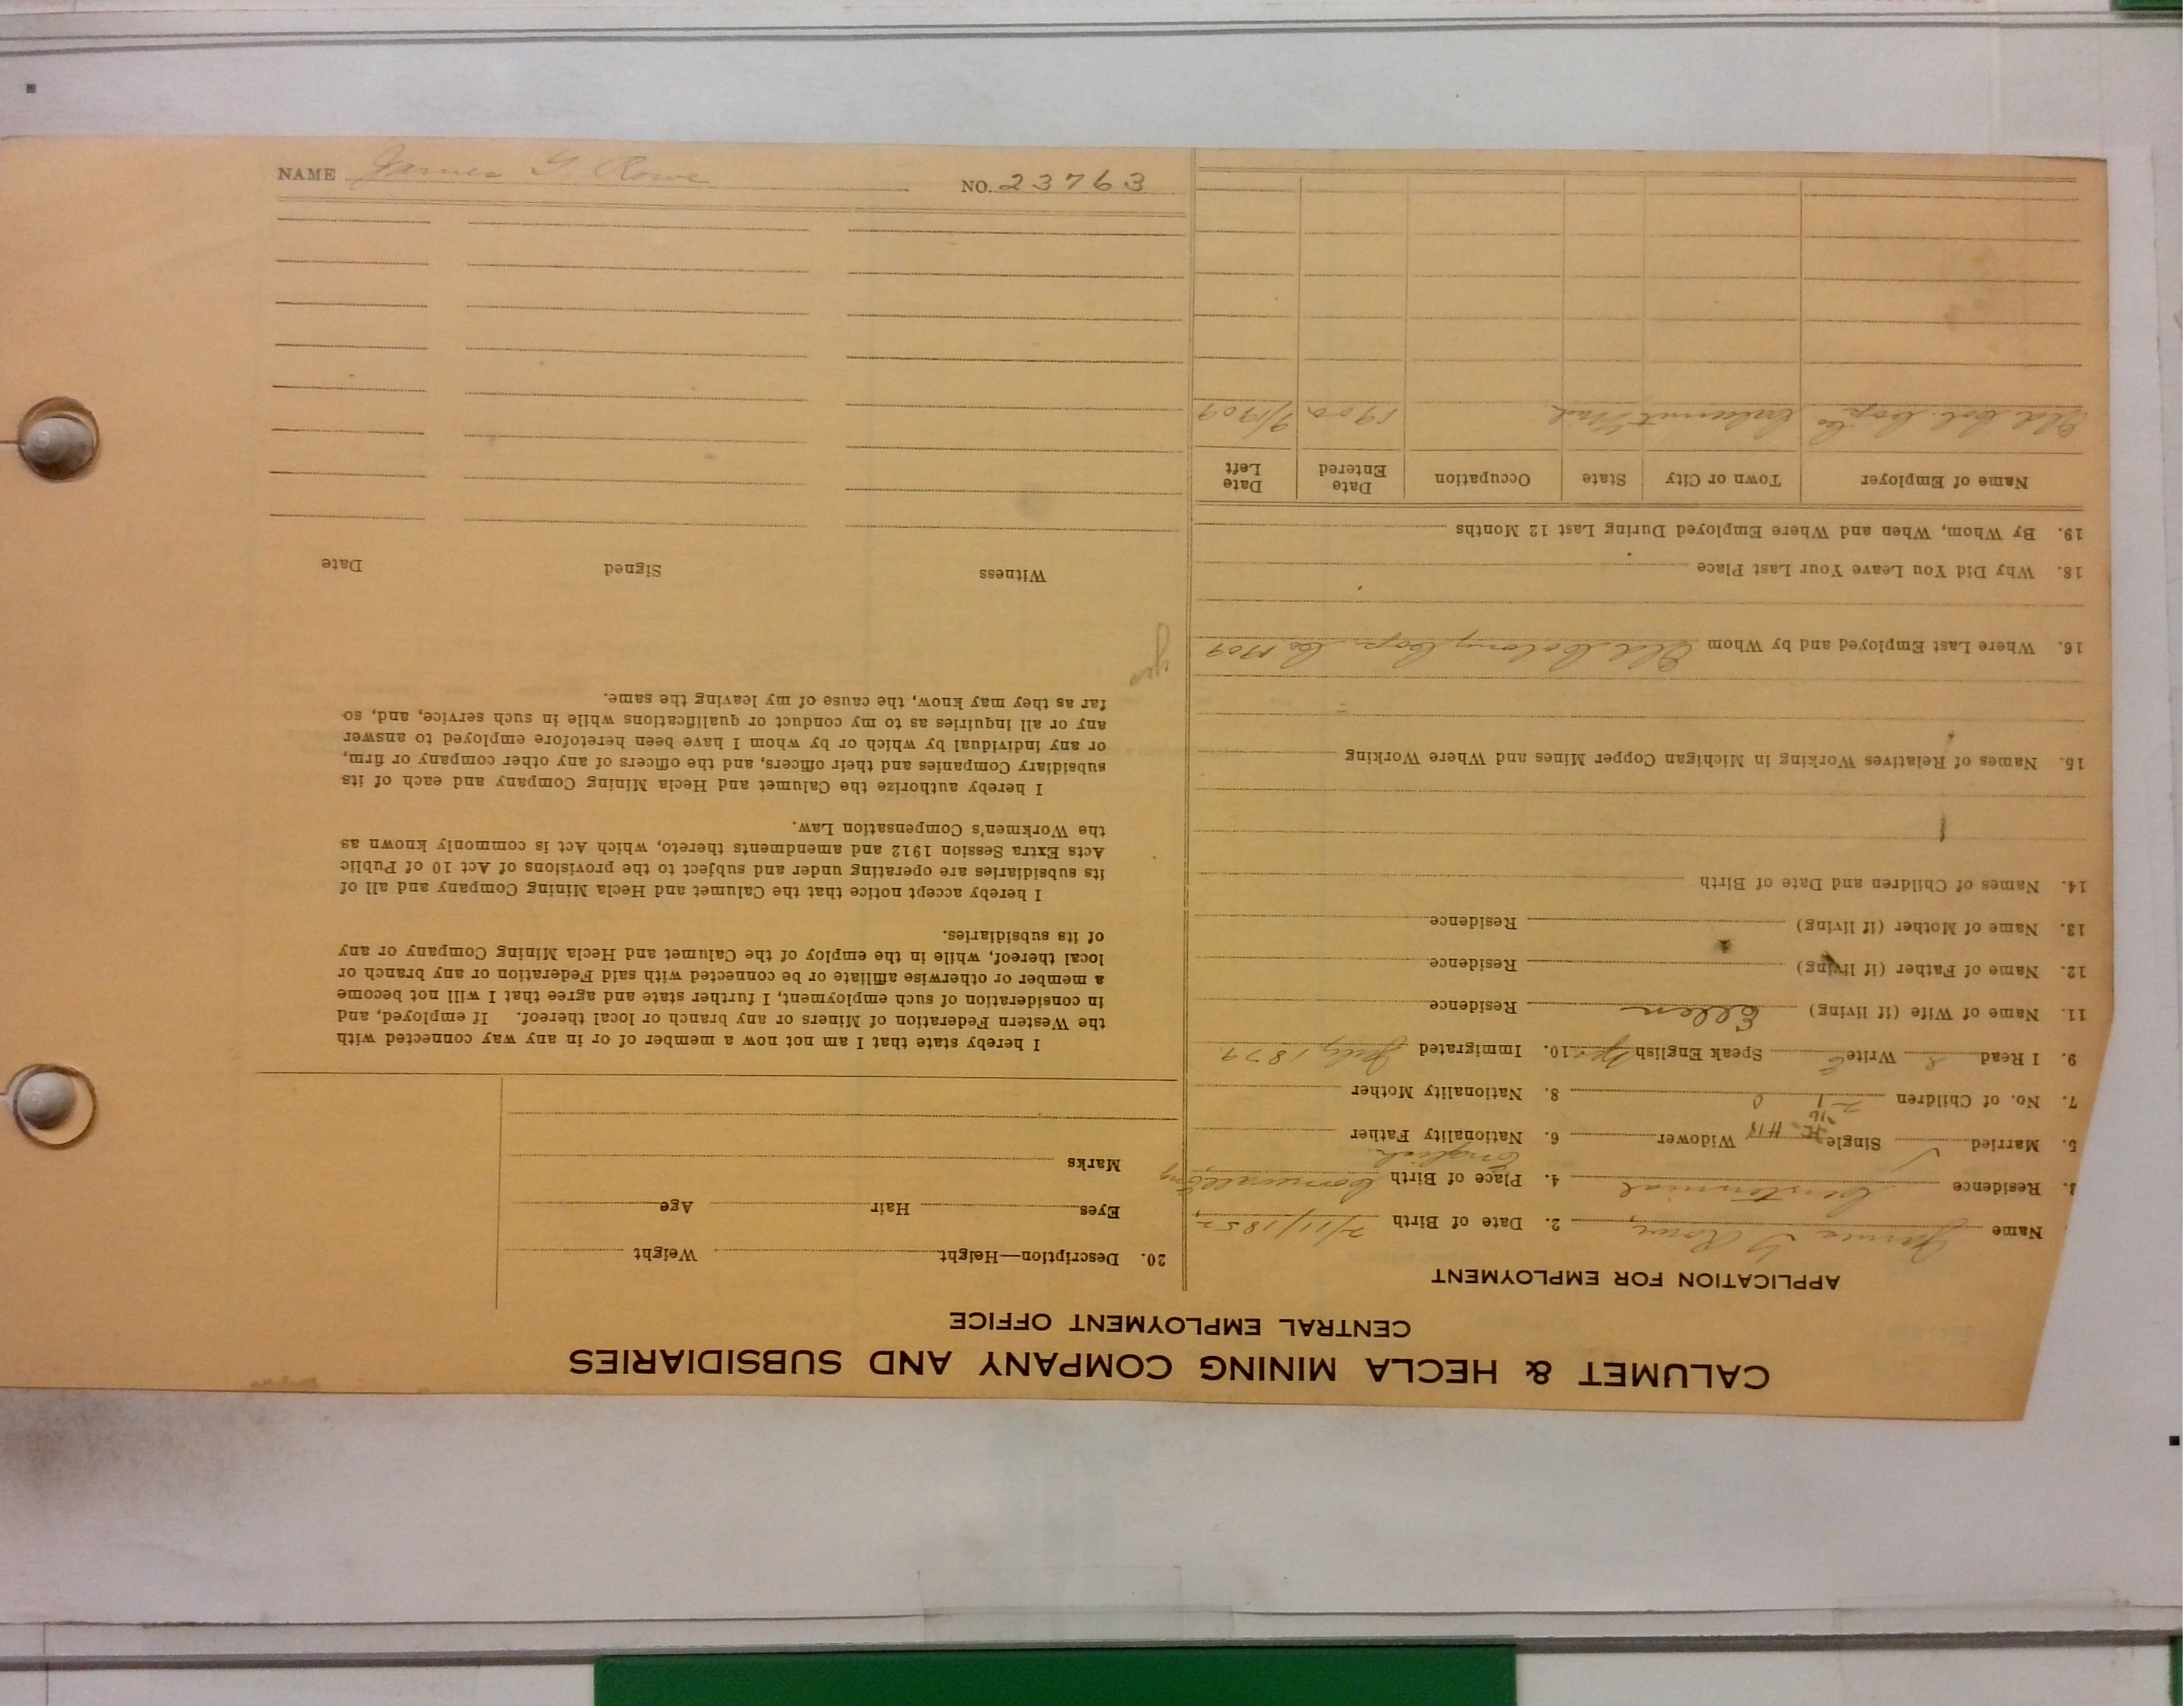 CALUMET & HECLA MINING COMPANY AND SUBSIDIARIES
CENTRAL EMPLOYMENT OFFICE
APPLICATION FOR EMPLOYMENT
Name James Rowe 2. Date of Birth 7/11/1852
3. Residence Centennial 4. Place of Birth Cornwall Eng
English
5. Married ✓ Single Widower 6. Nationality Father
7. No. of Children 8. Nationality Mother
9. I Read Write Speak English 10. Immigrated July 1879
11. Name of Wife (if living) Ellen Residence
12. Name of Father (if living) Residence
13. Name of Mother (if living) Residence
14. Names of Children and Date of Birth
15. Names of Relatives Working in Michigan Copper Mines and Where Working
16. Where Last Employed and by Whom Old Colony Cop. Co 1909
18. Why Did You Leave Your Last Place
19. By Whom, When and Where Employed During Last 12 Months
Name of Employer Town or City State Occupation Date Entered Date Left
Old Col. Cop Co Calumet Mich 1900 9/1909
20. Description—Height Weight
Eyes Hair Age
Marks
I hereby state that I am not now a member of or in any way connected with
the Western Federation of Miners or any branch or local thereof. If employed, and
in consideration of such employment, I further state and agree that I will not become
a member or otherwise affiliate or be connected with said Federation or any branch or
local thereof, while in the employ of the Calumet and Hecla Mining Company or any
of its subsidiaries.
I hereby accept notice that the Calumet and Hecla Mining Company and all of
its subsidiaries are operating under and subject to the provisions of Act 10 of Public
Acts Extra Session 1912 and amendments thereto, which Act is commonly known as
the Workmen's Compensation Law.
I hereby authorize the Calumet and Hecla Mining Company and each of its
subsidiary Companies and their officers, and the officers of any other company or firm,
or any individual by which or by whom I have been heretofore employed to answer
any or all inquiries as to my conduct or qualifications while in such service, and, so
far as they may know, the cause of my leaving the same.
Witness Signed Date
NAME James Rowe NO. 23763